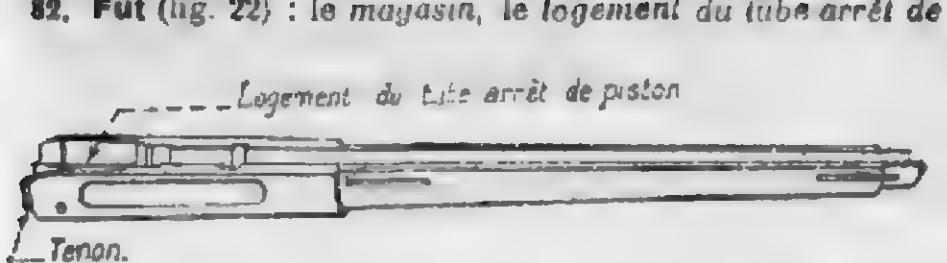 82. Fût (fig. 22) : le magasin, le logement du tube arrêt de
Logement du tube arrêt de piston
Tenon.